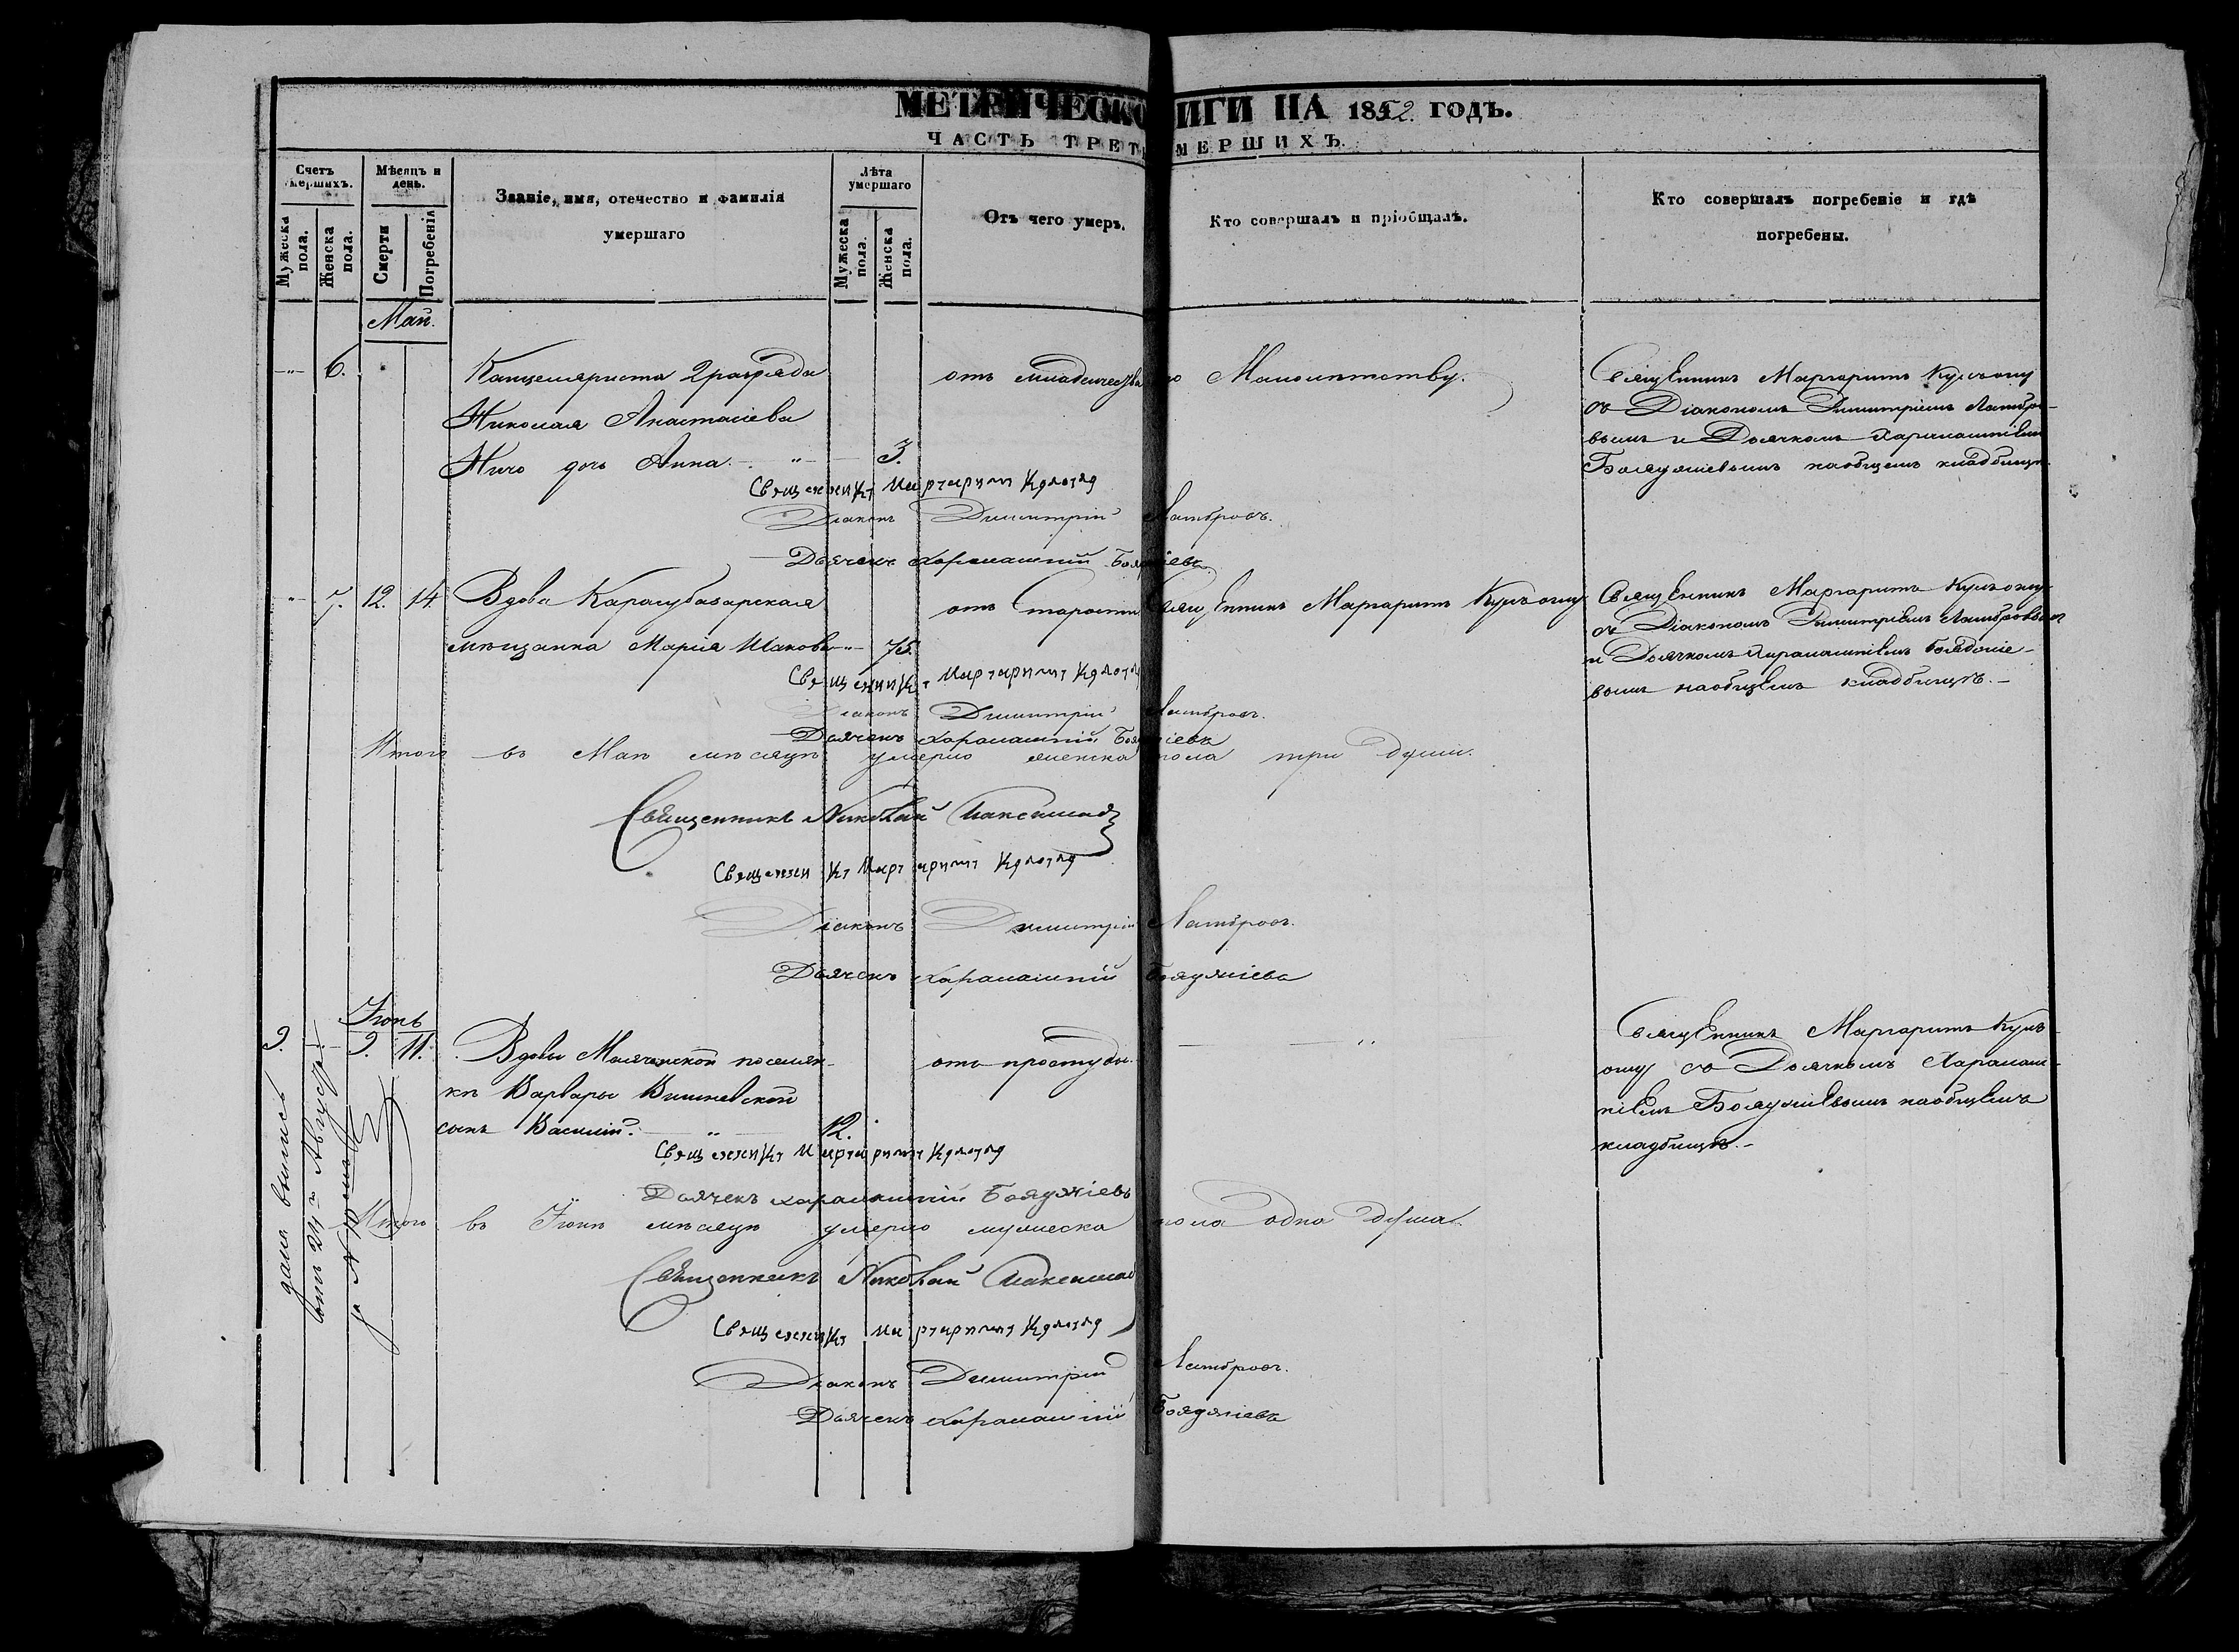 МЕТРИЧЕСКО ИГИ НА 1852. ГОДЪ.
ЧАСТЬ ТРЕТ МЕРШИХЪ.
Счетъ умершихъ.
Мужеска пола.
Женска пола.
Мѣсяцъ и день.
Смерти
Погребенія
Званіе, имя, отечество и фамилія умершаго
Лѣта умершаго
Мужеска пола.
Женска пола.
Отъ чего умеръ.
Кто совершалъ и пріобщалъ.
Кто совершалъ погребеніе и гдѣ погребены.
Май.
6.
Канцеляриста 2 разряда
Николая Анастасіева
дочь Анна. 3.
отъ младенчества по Малолѣтству.
Священникъ Маргаритъ
съ Діакономъ Димитріемъ Ламбро-
вымъ и Дьячкомъ Харалампіемъ
Бояджіевымъ наобщемъ кладбищѣ.
Священникъ Маргаритъ
Діаконъ Димитрій Ламбровъ.
Дьячекъ Харалампій Бояджіевъ
7. 12. 14. Вдова Карасубазарская
мѣщанка Марія 75.
отъ Старости
Священникъ Маргаритъ
Священникъ Маргаритъ
съ Діакономъ Димитріемъ Ламбровымъ
и Дьячкомъ Харалампіемъ Бояджіе-
вымъ наобщемъ кладбищѣ.-
Священникъ Маргаритъ
Діаконъ Димитрій Ламбровъ.
Дьячекъ Харалампій Бояджіевъ
Итого въ Маѣ мѣсяцѣ умерло женска пола три души.
Священникъ Николай
Священникъ Маргаритъ
Діаконъ Димитрій Ламбровъ.
Дьячекъ Харалампій Бояджіевъ
Іюнь
9. 9. 11. Вдовы поселян-
ки Варвары Вишневской
сынъ Василій. 12.
отъ простуды.
Священникъ Маргаритъ
съ Дьячкомъ Харалам-
піемъ Бояджіевымъ наобщемъ
кладбищѣ.-
Священникъ Маргаритъ
Дьячекъ Харалампій Бояджіевъ
Итого въ Іюнѣ мѣсяцѣ умерло мужеска пола одна душа.
Священникъ Николай
Священникъ Маргаритъ
Діаконъ Димитрій Ламбровъ.
Дьячекъ Харалампій Бояджіевъ
дана выпись
отъ 21-го Августа
за №